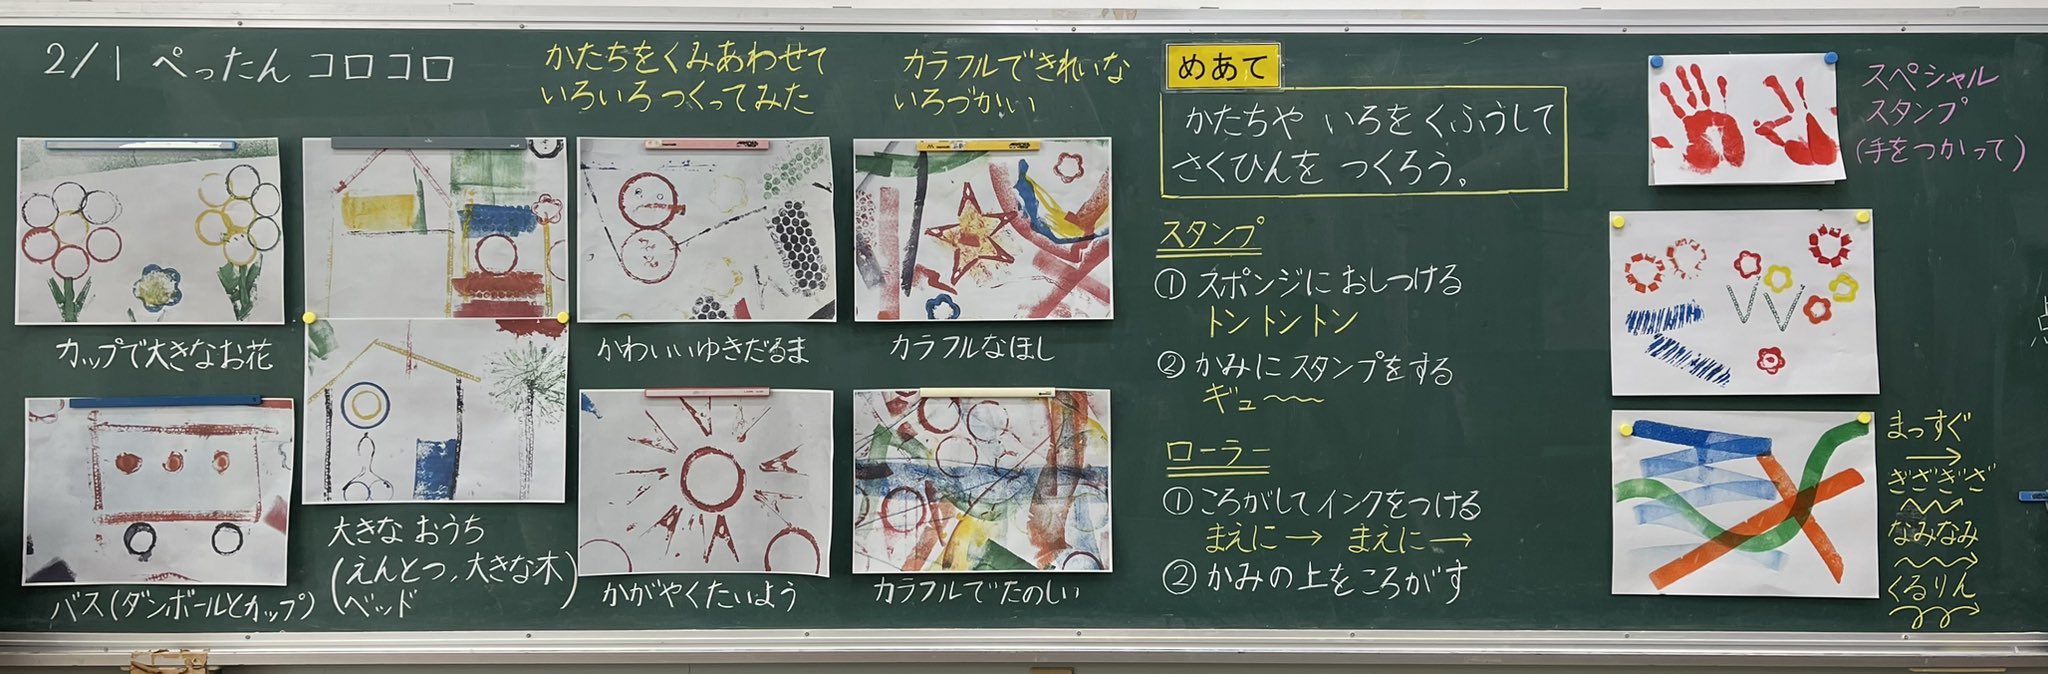 2/1 ぺったん コロコロ
かたちをくみあわせて
いろいろ つくってみた
カラフルできれいな
いろづかい
カップで大きなお花
バス(ダンボールとカップ)
大きな おうち
(えんとつ、大きな木)
ベッド
かわいいゆきだるま
かがやくたいよう
カラフルなほし
カラフルでたのしい
めあて
かたちや いろを くふうして
さくひんを つくろう。
スタンプ
① スポンジに おしつける
トントントン
② かみに スタンプをする
ギュ〜〜〜
ローラー
① ころがして インクをつける
まえに→ まえに→
② かみの上を ころがす
スペシャル
スタンプ
(手をつかって)
まっすぐ
ぎざぎざ
なみなみ
くるりん